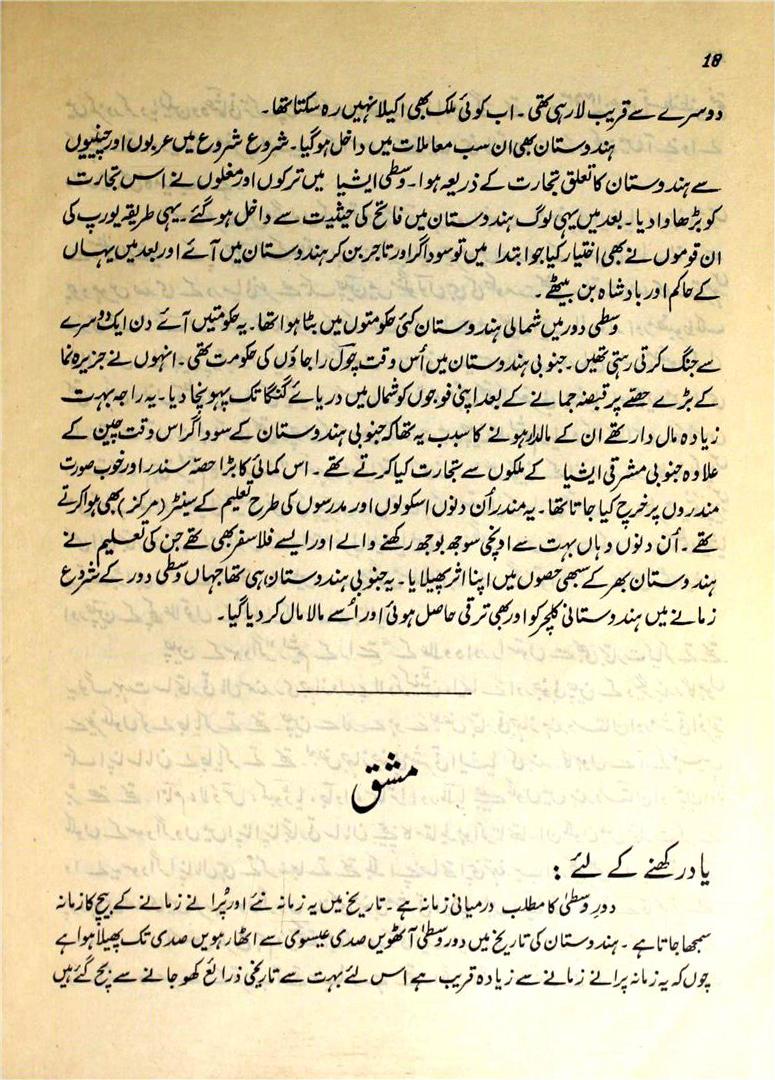 18
دوسرے سے قریب لا رہی تھی۔ اب کوئی ملک بھی اکیلا نہیں رہ سکتا تھا۔
ہندوستان بھی ان سب معاملات میں داخل ہو گیا۔ شروع شروع میں عربوں اور چینیوں
سے ہندوستان کا تعلق تجارت کے ذریعہ ہوا۔ وسطی ایشیا میں ترکوں اور مغلوں نے اس تجارت
کو بڑھاوا دیا۔ بعد میں یہی لوگ ہندوستان میں فاتح کی حیثیت سے داخل ہو گئے۔ یہی طریقہ یورپ کی
ان قوموں نے بھی اختیار کیا جو ابتدا میں تو سوداگر اور تاجر بن کر ہندوستان میں آئے اور بعد میں یہاں
کے حاکم اور بادشاہ بن بیٹھے۔
وسطی دور میں شمالی ہندوستان کئی حکومتوں میں بٹا ہوا تھا۔ یہ حکومتیں آئے دن ایک دوسرے
سے جنگ کرتی رہتی تھیں۔ جنوبی ہندوستان میں اُس وقت چول راجاؤں کی حکومت تھی۔ انہوں نے جزیرہ نما
کے بڑے حصّے پر قبضہ جمانے کے بعد اپنی فوجوں کو شمال میں دریائے گنگا تک پہونچا دیا۔ یہ راجہ بہت
زیادہ مال دار تھے ان کے مالدار ہونے کا سبب یہ تھا کہ جنوبی ہندوستان کے سوداگر اس وقت چین کے
علاوہ جنوبی مشرقی ایشیا کے ملکوں سے تجارت کیا کرتے تھے۔ اس کمائی کا بڑا حصّہ سندر اور خوب صورت
مندروں پر خرچ کیا جاتا تھا۔ یہ مندر اُن دنوں اسکولوں اور مدرسوں کی طرح تعلیم کے سینٹر (مرکز) بھی ہوا کرتے
تھے۔ اُن دنوں وہاں بہت سے اونچی سوجھ بوجھ رکھنے والے اور ایسے فلاسفر بھی تھے جن کی تعلیم نے
ہندوستان بھر کے سبھی حصوں میں اپنا اثر پھیلایا۔ یہ جنوبی ہندوستان ہی تھا جہاں وسطی دور کے شروع
زمانے میں ہندوستانی کلچر کو اور بھی ترقی حاصل ہوئی اور اُسے مالا مال کر دیا گیا۔
مشق
یاد رکھنے کے لئے :
دورِ وسطیٰ کا مطلب درمیانی زمانہ ہے۔ تاریخ میں یہ زمانہ نئے اور پُرانے زمانے کے بیچ کا زمانہ
سمجھا جاتا ہے۔ ہندوستان کی تاریخ میں دور وسطیٰ آٹھویں صدی عیسوی سے اٹھارہویں صدی تک پھیلا ہوا ہے
چوں کہ یہ زمانہ پرانے زمانے سے زیادہ قریب ہے اس لئے بہت سے تاریخی ذرائع کھو جانے سے بچ گئے ہیں